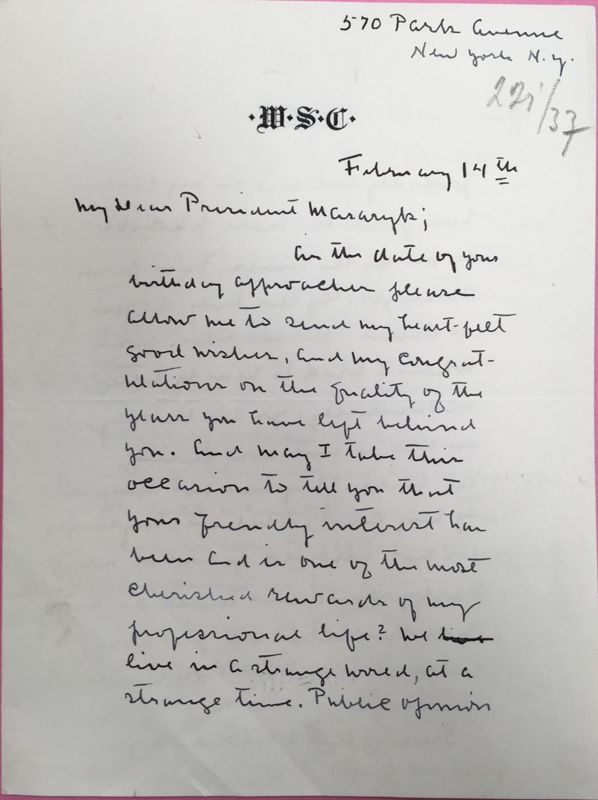 570 Park Avenue
New York N.Y.
221/37
·W·S·C·
February 14th
My dear President Masaryk;
As the date of your
birthday approaches please
allow me to send my heart-felt
good wishes, and my congrat-
ulations on the quality of the
years you have left behind
you. And may I take this
occasion to tell you that
your friendly interest has
been and is one of the most
cherished rewards of my
professional life? We
live in a strange world, at a
strange time. Public opinion